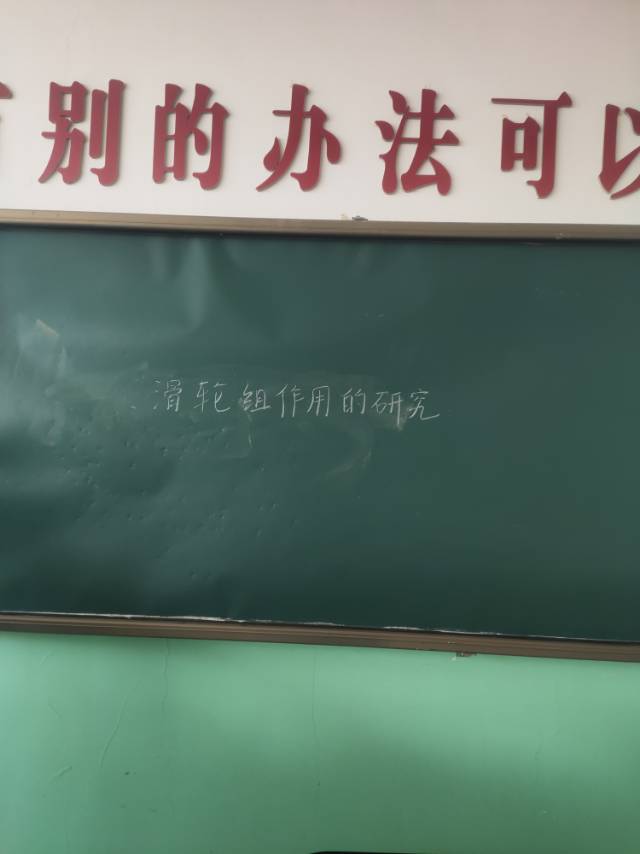 别的办法可以
滑轮组作用的研究